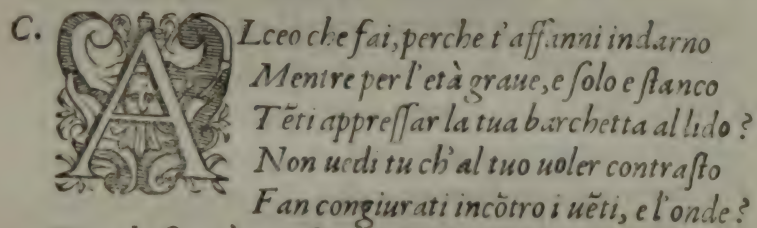 C. ALceo che fai, perche t'affanni indarno
Mentre per l'età graue, e ſolo e ſtanco
Tēti appreſſar la tua barchetta al lido?
Non uedi tu ch'al tuo uoler contraſto
Fan congiurati incōtro i uēti, e l'onde?